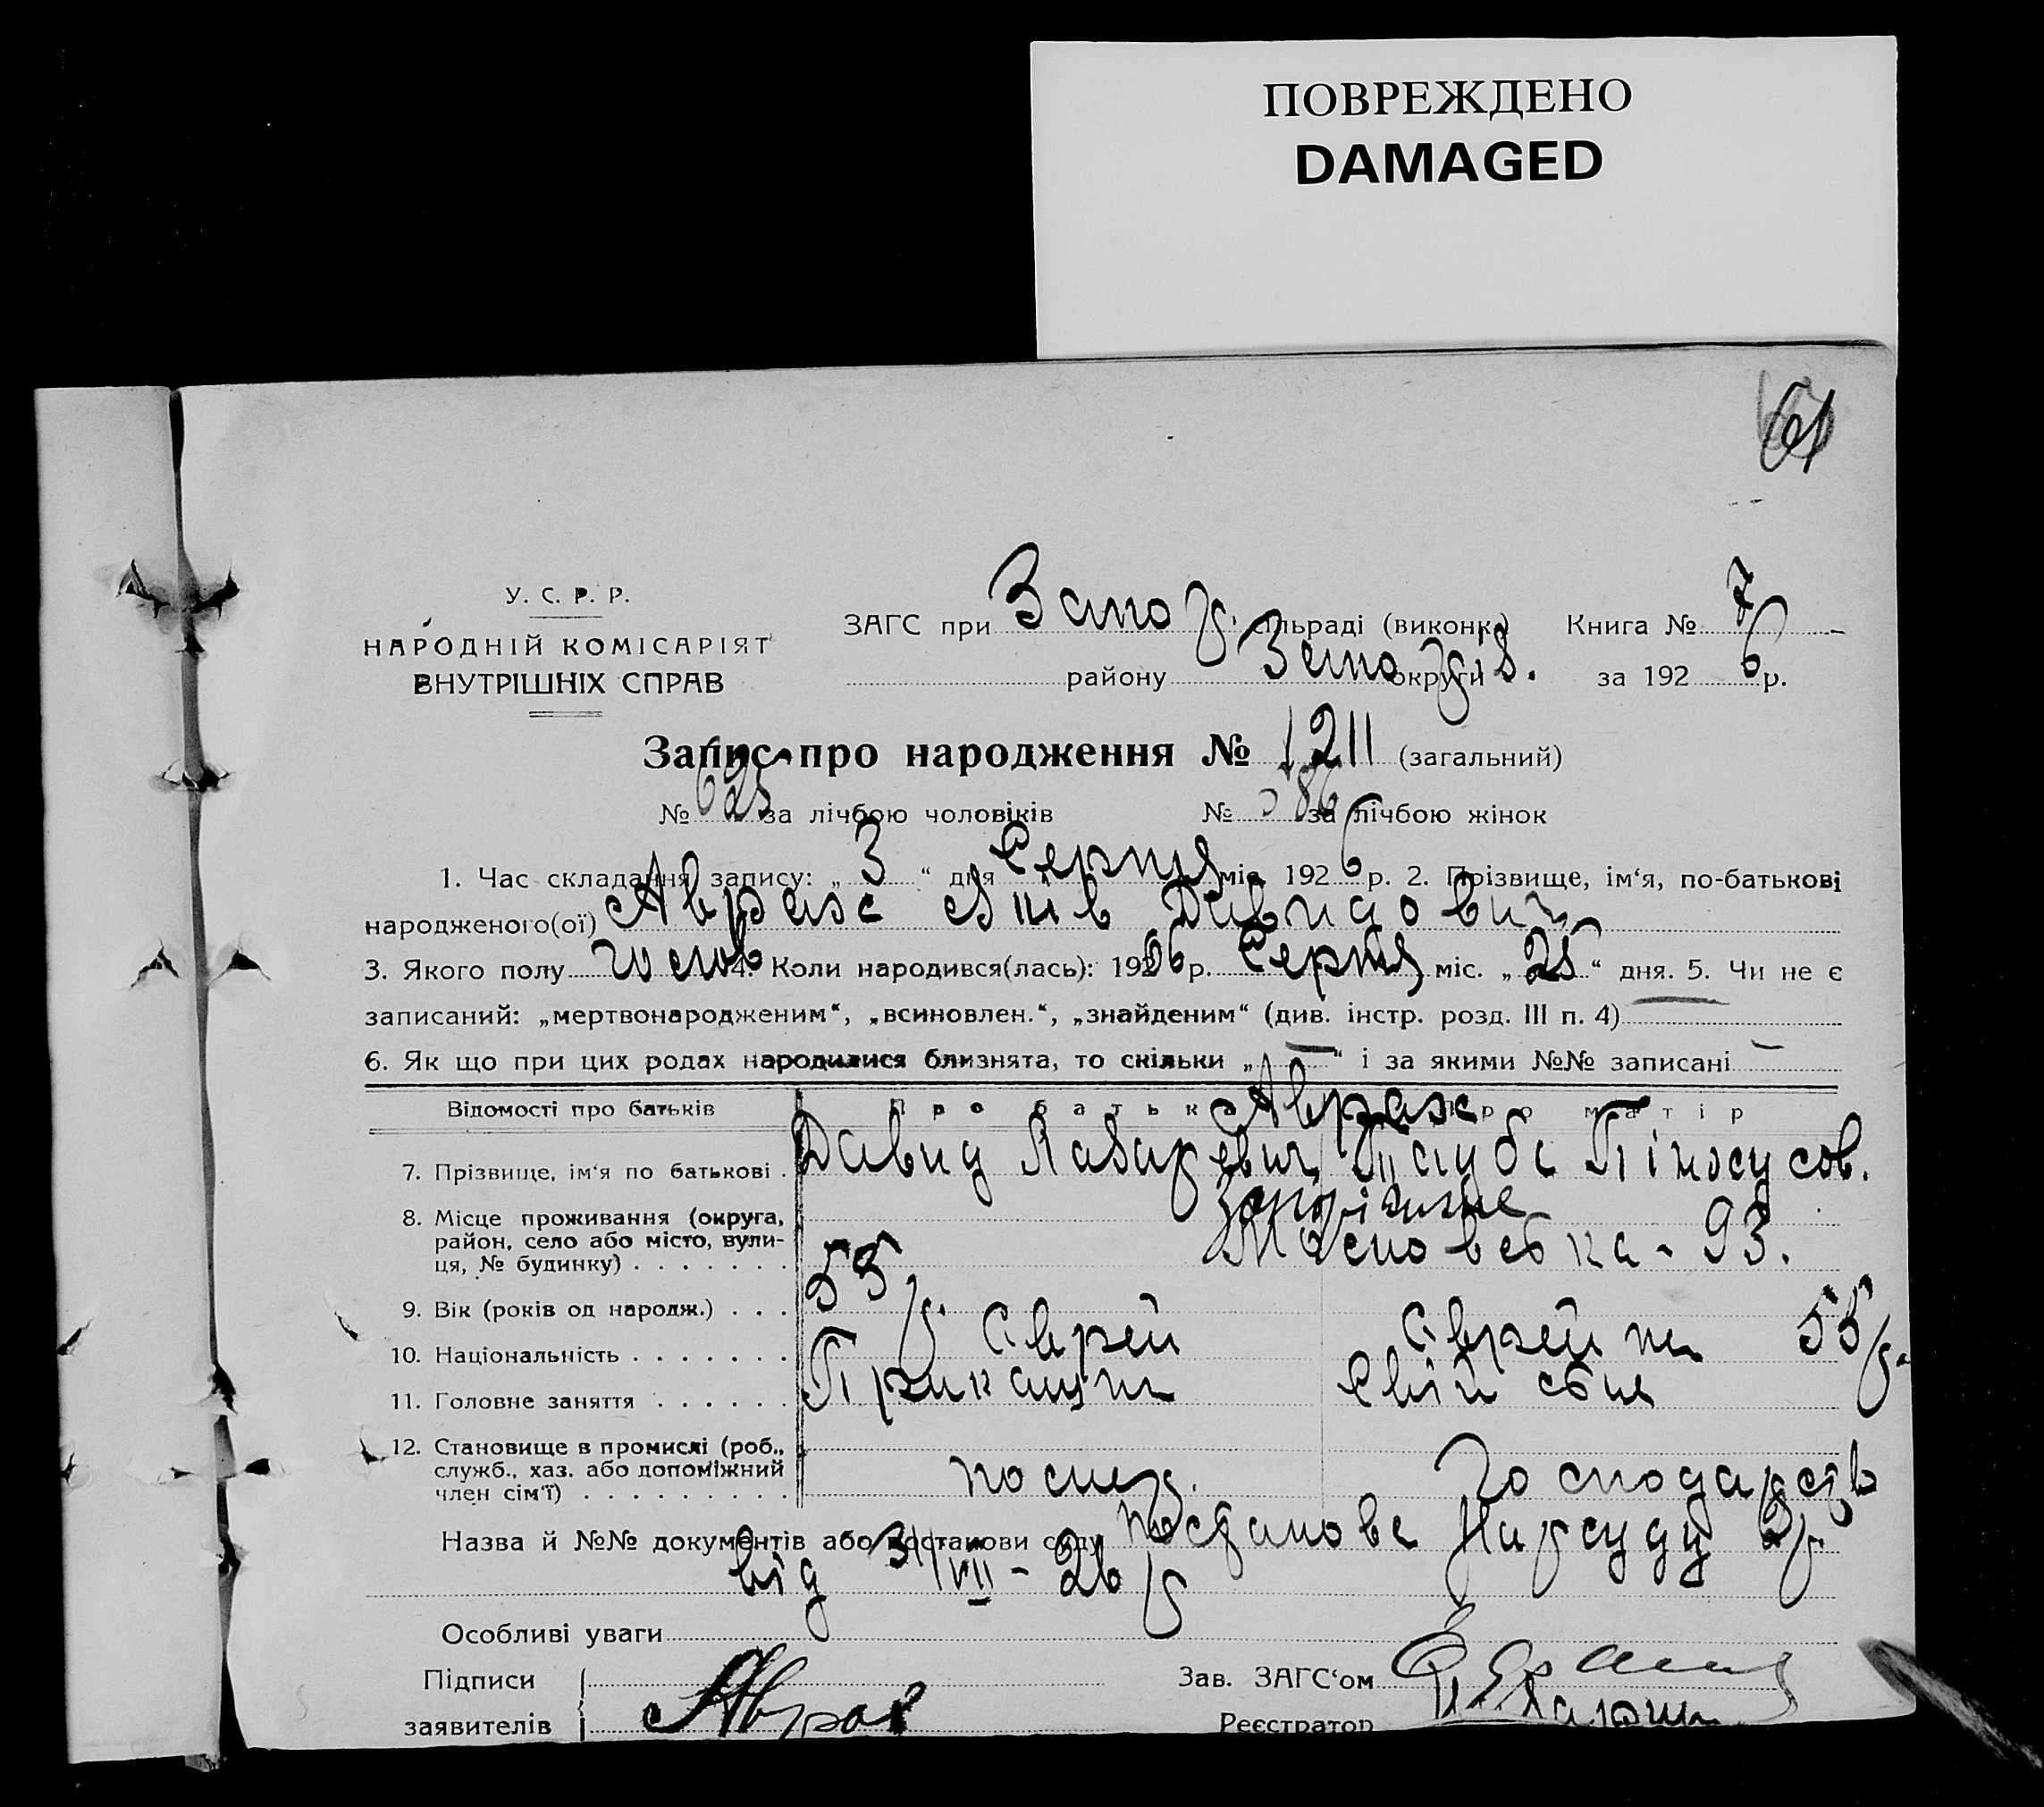 ПОВРЕЖДЕНО
DAMAGED
61
У. С. Р. Р.
НАРОДНІЙ КОМІСАРІЯТ
ВНУТРІШНІХ СПРАВ
ЗАГС при Запор. сільраді (виконк.) Книга № 7
району Запоріз. округи за 1926 р.
Запис про народження № 1211 (загальний)
№ 625 за лічбою чоловіків № 586 за лічбою жінок
1. Час складання запису: „3“ дня Серпня міс. 1926 р. 2. Прізвище, ім‘я, по-батькові
народженого(ої) Аврах Давидович
3. Якого полу чолов 4. Коли народився(лась): 1906 р. Серпня міс. „25“ дня. 5. Чи не є
записаний: „мертвонародженим“, „всиновлен.“, „знайденим“ (див. інстр. розд. III п. 4) —
6. Як що при цих родах народилися близнята, то скільки „—“ і за якими №№ записані —
Відомості про батьків Про батька Про матір
Аврах
7. Прізвище, ім‘я по батькові . Давид Лазаревич
8. Місце проживання (округа,
район, село або місто, вули-
ця, № будинку) . . . . . . .
Запоріжжє
Московська - 93.
9. Вік (років од народж.) . . . 55 р. 55 р.
10. Національність . . . . . . . Єврей Єврейка
11. Головне заняття . . . . . . Прикащик
12. Становище в промислі (роб.,
служб., хаз. або допоміжний
член сім‘ї) . . . . . . . . .
господарств
Назва й №№ документів або постанови суду Постанова Нарсуду
від 31/VII - 26 р
Особливі уваги
Підписи
заявителів Аврах
Зав. ЗАГС‘ом
Реєстратор